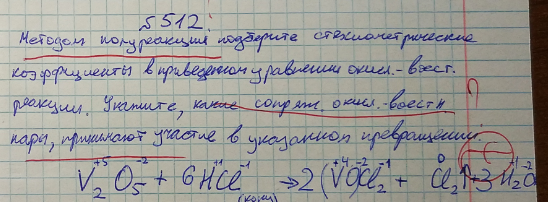 № 512.
Методом полуреакций подберите стехиометрические
коэффициенты в приведенном уравнении окисл.-восст.
реакции. Укажите, какие сопряж. окисл.-восстн
пары, принимают участие в указанном превращении.
V₂⁺⁵O₅⁻² + 6H⁺¹Cl⁻¹ (конц) → 2(V⁺⁴O⁻²)Cl₂⁻¹ + Cl₂⁰↑ + 3H₂⁺¹O⁻²